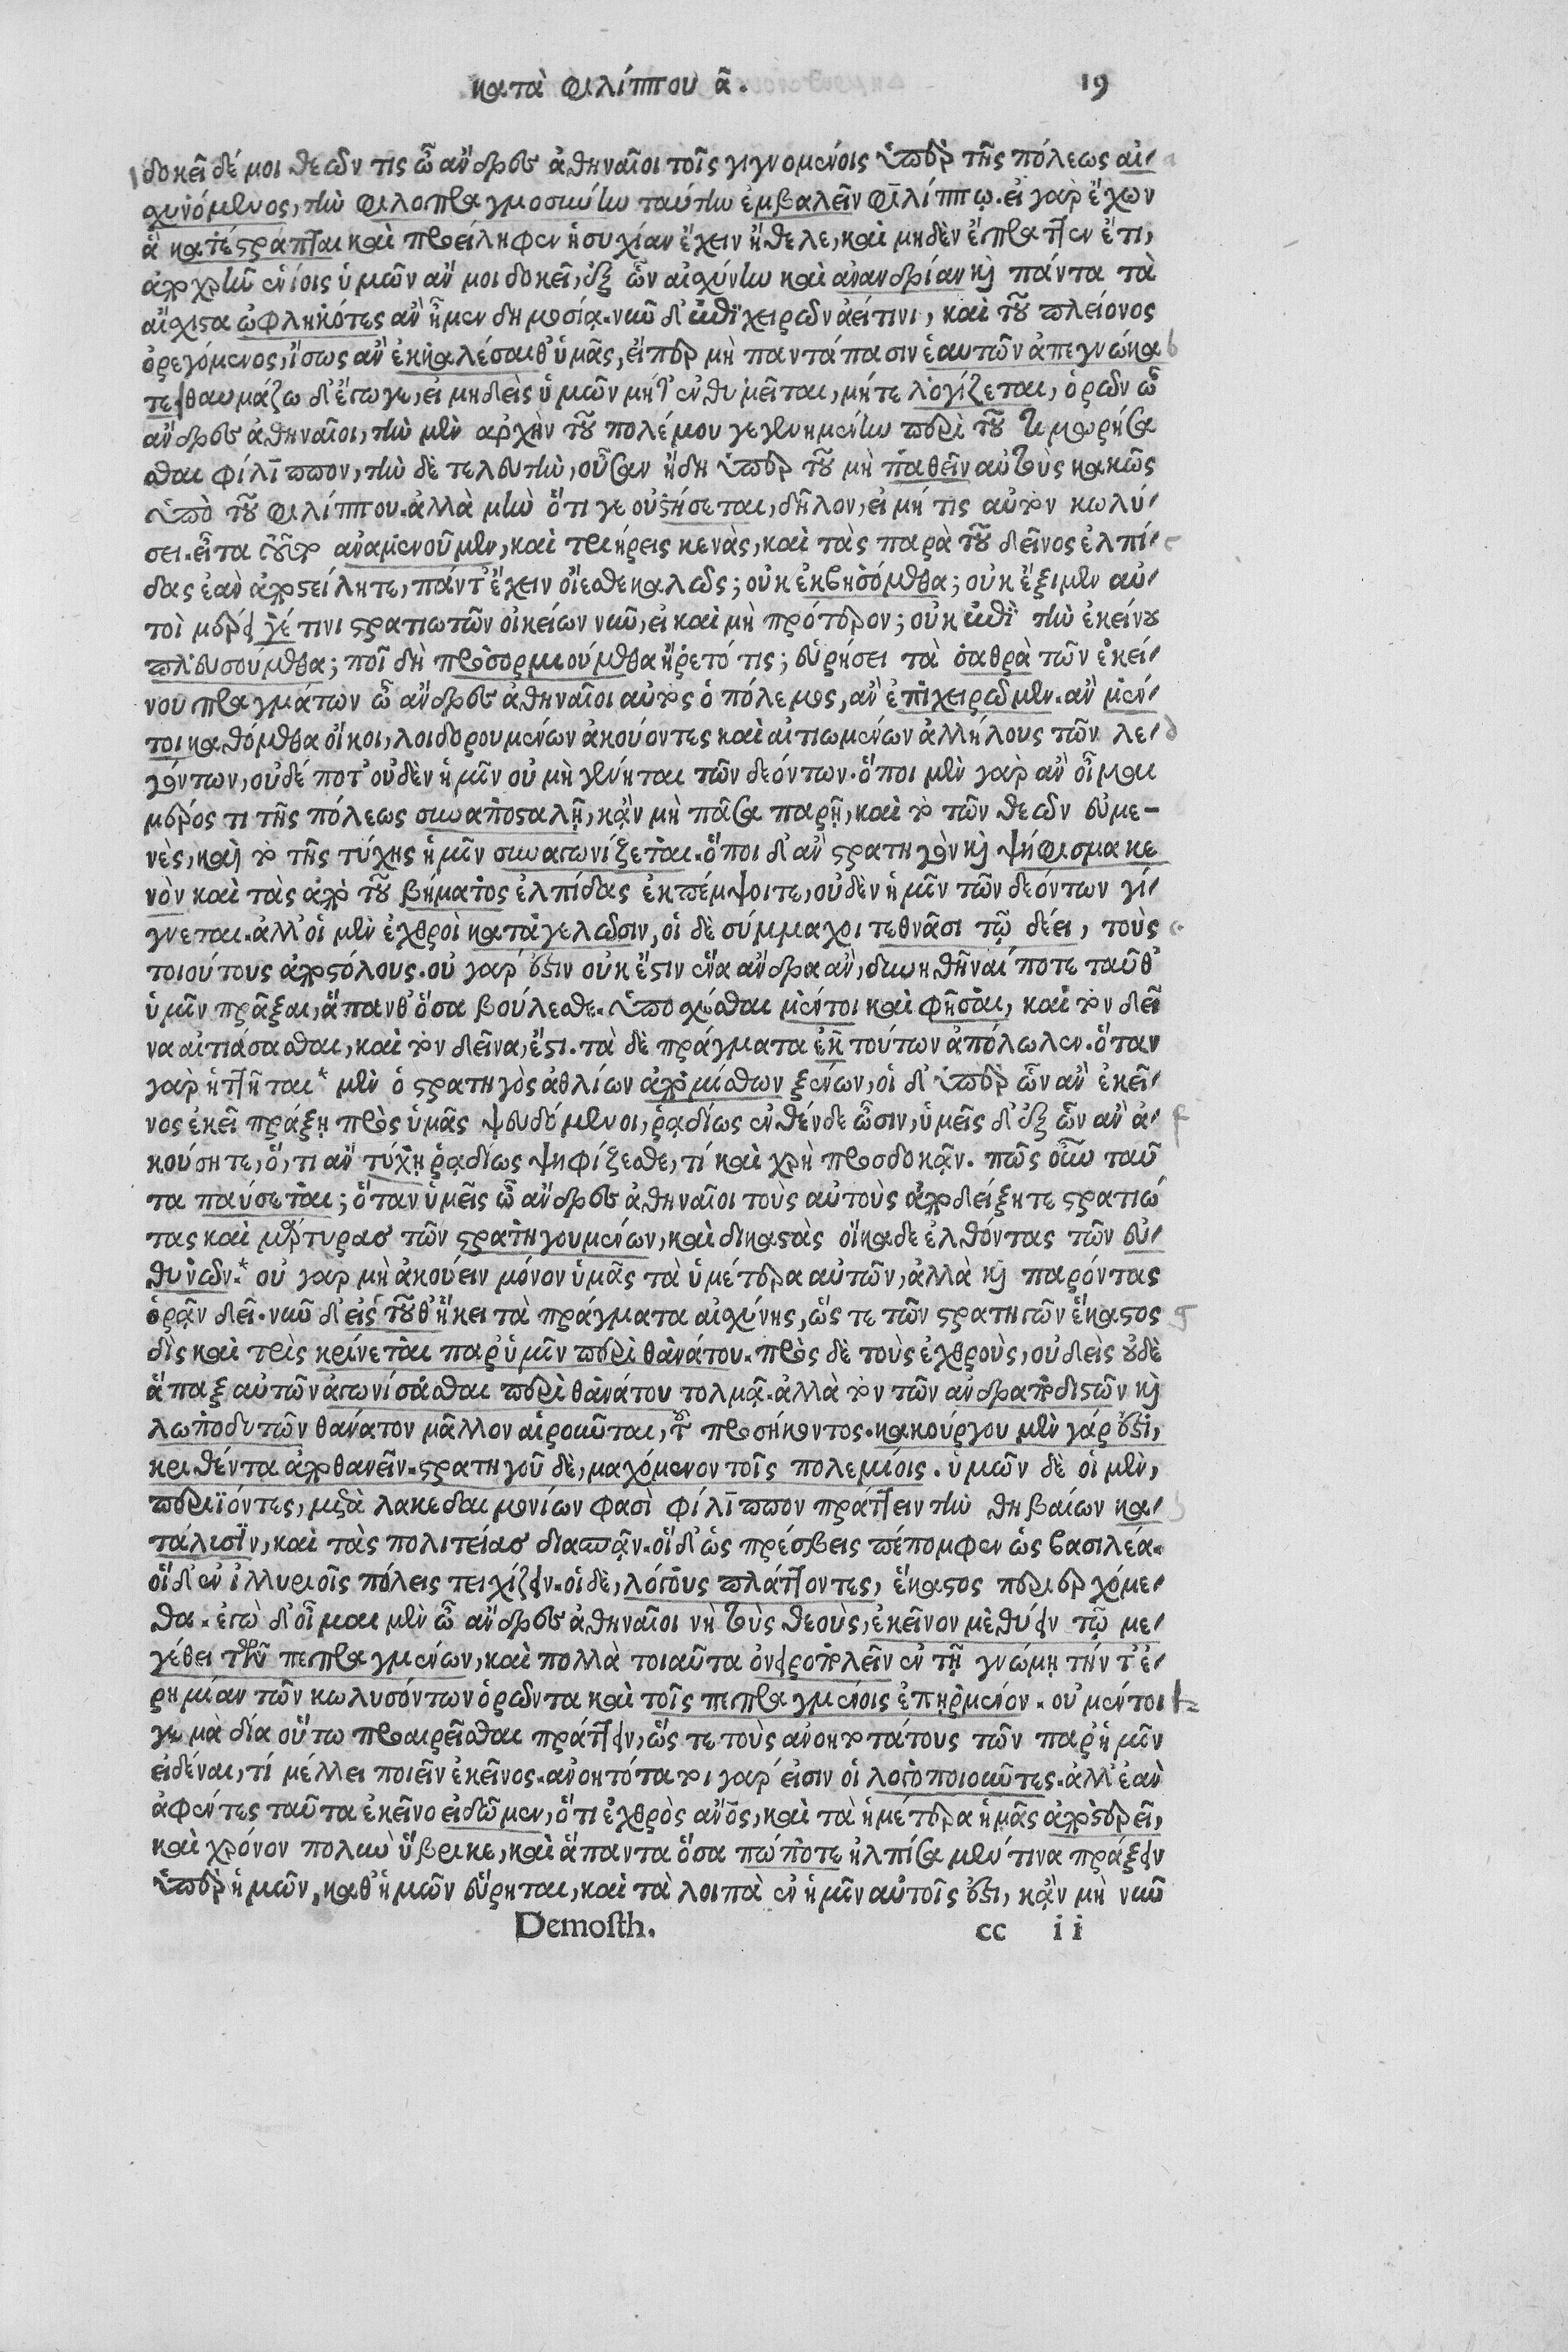 κατὰ Φιλίππου α̃.
19
δοκεῖ δέ μοι θεῶν τις ὦ ἄνδρες ἀθηναῖοι τοῖς γιγνομένοις ὑπὲρ τῆς πόλεως αἰ-
σχυνόμενος, τὴν φιλοπραγμοσύνην ταύτην ἐμβαλεῖν Φιλίππῳ. εἰ γὰρ ἔχων
ἃ κατέστραπται καὶ προείληφεν ἡσυχίαν ἔχειν ἤθελε, καὶ μηδὲν ἔπραττεν ἔτι,
ἀποχρῆν ἐνίοις ὑμῶν ἄν μοι δοκεῖ, ἐξ ὧν αἰσχύνην καὶ ἀνανδρίαν καὶ πάντα τὰ
αἴσχιστα ὠφληκότες ἂν ἦμεν δημοσίᾳ. νῦν δ' ἐπιχειρῶν ἀεί τινι, καὶ τοῦ πλείονος
ὀρεγόμενος, ἴσως ἂν ἐκκαλέσαιθ' ὑμᾶς, εἴπερ μὴ παντάπασιν ἑαυτῶν ἀπεγνώκα b
τε. θαυμάζω δ' ἔγωγε, εἰ μηδεὶς ὑμῶν μήτ' ἐνθυμεῖται, μήτε λογίζεται, ὁρῶν ὦ
ἄνδρες ἀθηναῖοι, τὴν μὲν ἀρχὴν τοῦ πολέμου γεγενημένην περὶ τοῦ τιμωρήσα
σθαι φίλιππον, τὴν δὲ τελευτὴν, οὖσαν ἤδη ὑπὲρ τοῦ μὴ παθεῖν αὐτοὺς κακῶς
ὑπὸ τοῦ Φιλίππου. ἀλλὰ μὴν ὅτι γε οὐ στήσεται, δῆλον, εἰ μή τις αὐτὸν κωλύ-
σει. εἶτα τοῦτο ἀναμενοῦμεν, καὶ τριήρεις κενὰς, καὶ τὰς παρὰ τοῦ δεῖνος ἐλπί- c
δας ἐὰν ἀποστείλητε, πάντ' ἔχειν οἴεσθε καλῶς; οὐκ ἐκβησόμεθα; οὐκ ἔξιμεν αὐ-
τοὶ μέρει γέ τινι στρατιωτῶν οἰκείων νῦν, εἰ καὶ μὴ πρότερον; οὐκ ἐπὶ τὴν ἐκείνου
πλευσούμεθα; ποῖ δὴ προσορμιούμεθα ἤρετό τις; εὑρήσει τὰ σαθρὰ τῶν ἐκεί-
νου πραγμάτων ὦ ἄνδρες ἀθηναῖοι αὐτὸς ὁ πόλεμος, ἂν ἐπιχειρῶμεν. ἂν μέν-
τοι καθώμεθα οἴκοι, λοιδορουμένων ἀκούοντες καὶ αἰτιωμένων ἀλλήλους τῶν λε- d
γόντων, οὐδέ ποτ' οὐδὲν ἡμῖν οὐ μὴ γένηται τῶν δεόντων. ὅποι μὲν γὰρ ἂν οἶμαι
μέρος τι τῆς πόλεως συναποσταλῇ, κἂν μὴ πᾶσα παρῇ, καὶ τὸ τῶν θεῶν εὐμε-
νὲς, καὶ τὸ τῆς τύχης ἡμῖν συναγωνίζεται. ὅποι δ' ἂν στρατηγὸν καὶ ψήφισμα κε
νὸν καὶ τὰς ἀπὸ τοῦ βήματος ἐλπίδας ἐκπέμψοιτε, οὐδὲν ἡμῖν τῶν δεόντων γί-
γνεται. ἀλλ' οἱ μὲν ἐχθροὶ καταγελῶσιν, οἱ δὲ σύμμαχοι τεθνᾶσι τῷ δέει, τοὺς e
τοιούτους ἀποστόλους. οὐ γὰρ ἔστιν οὐκ ἔστιν ἕνα ἄνδρα ἂν, δυνηθῆναί ποτε ταῦθ'
ὑμῖν πρᾶξαι, ἅπανθ' ὅσα βούλεσθε. ὑποσχέσθαι μέντοι καὶ φῆσαι, καὶ τὸν δεῖ
να αἰτιάσασθαι, καὶ τὸν δεῖνα, ἔστι. τὰ δὲ πράγματα ἐκ τούτων ἀπόλωλεν. ὅταν
γὰρ ἡγῆται* μὲν ὁ στρατηγὸς ἀθλίων ἀπομίσθων ξένων, οἱ δ' ὑπὲρ ὧν ἂν ἐκεῖ-
νος ἐκεῖ πράξῃ πρὸς ὑμᾶς ψευδόμενοι, ῥᾳδίως ἐνθένδε ὦσιν, ὑμεῖς δ' ἐξ ὧν ἂν ἀ- f
κούσητε, ὅ, τι ἂν τύχῃ ῥᾳδίως ψηφίζεσθε, τί καὶ χρὴ προσδοκᾷν. πῶς οὖν ταῦ
τα παύσεται; ὅταν ὑμεῖς ὦ ἄνδρες ἀθηναῖοι τοὺς αὐτοὺς ἀποδείξητε στρατιώ
τας καὶ μάρτυρας τῶν στρατηγουμένων, καὶ δικαστὰς οἴκαδε ἐλθόντας τῶν εὐ-
θυνῶν.* οὐ γὰρ μὴ ἀκούειν μόνον ὑμᾶς τὰ ὑμέτερα αὐτῶν, ἀλλὰ καὶ παρόντας
ὁρᾷν δεῖ. νῦν δ' εἰς τοῦθ' ἥκει τὰ πράγματα αἰσχύνης, ὥς τε τῶν στρατηγῶν ἕκαστος g
δὶς καὶ τρὶς κρίνεται παρ' ὑμῖν περὶ θανάτου. πρὸς δὲ τοὺς ἐχθροὺς, οὐδεὶς οὐδὲ
ἅπαξ αὐτῶν ἀγωνίσασθαι περὶ θανάτου τολμᾷ. ἀλλὰ τὸν τῶν ἀνδραποδιστῶν καὶ
λωποδυτῶν θάνατον μᾶλλον αἱροῦνται, τοῦ προσήκοντος. κακούργου μὲν γάρ ἐστι,
κριθέντα ἀποθανεῖν. στρατηγοῦ δὲ, μαχόμενον τοῖς πολεμίοις. ὑμῶν δὲ οἱ μὲν,
περιϊόντες, μετὰ λακεδαιμονίων φασὶ φίλιππον πράττειν τὴν θηβαίων κα-
τάλυσιν, καὶ τὰς πολιτείας διασπᾷν. οἱ δ' ὡς πρέσβεις πέπομφεν ὡς βασιλέα.
οἱ δ' ἐν ἰλλυριοῖς πόλεις τειχίζειν. οἱ δὲ, λόγους πλάττοντες, ἕκαστος περιερχόμε-
θα. ἐγὼ δ' οἶμαι μὲν ὦ ἄνδρες ἀθηναῖοι νὴ τοὺς θεοὺς, ἐκεῖνον μεθύειν τῷ με-
γέθει τῶν πεπραγμένων, καὶ πολλὰ τοιαῦτα ὀνειροπολεῖν ἐν τῇ γνώμῃ τήν τ' ἐ-
ρημίαν τῶν κωλυσόντων ὁρῶντα καὶ τοῖς πεπραγμένοις ἐπηρμένον. οὐ μέντοι
γε μὰ δία οὕτω προαιρεῖσθαι πράττειν, ὥς τε τοὺς ἀνοητοτάτους τῶν παρ' ἡμῖν
εἰδέναι, τί μέλλει ποιεῖν ἐκεῖνος. ἀνοητότατοι γάρ εἰσιν οἱ λογοποιοῦντες. ἀλλ' ἐὰν
ἀφέντες ταῦτα ἐκεῖνο εἰδῶμεν, ὅτι ἐχθρὸς ἁνὸς, καὶ τὰ ἡμέτερα ἡμᾶς ἀποστερεῖ,
καὶ χρόνον πολὺν ὕβρικε, καὶ ἅπαντα ὅσα πώποτε ἠλπίσαμέν τινα πράξειν
ὑπὲρ ἡμῶν, καθ' ἡμῶν εὕρηται, καὶ τὰ λοιπὰ ἐν ἡμῖν αὐτοῖς ἐστι, κἂν μὴ νῦν
Demosth.
cc ii